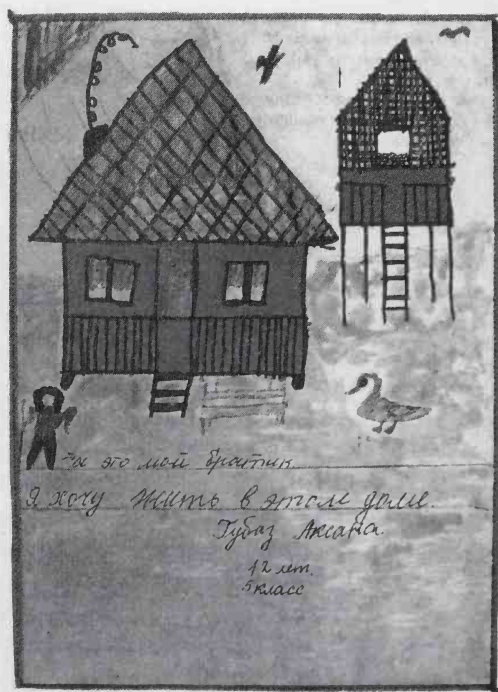 -а это мой братик.
Я хочу жить в этом доме.
Губаз Аксана.
12 лет.
5 класс